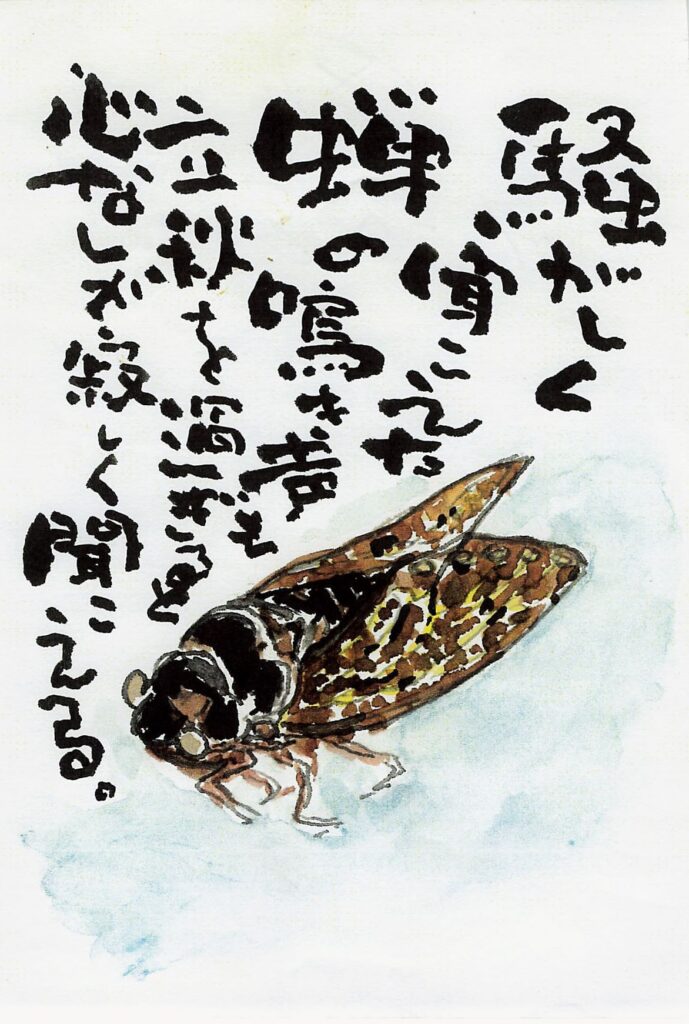 騒がしく
聞こえた
蝉の鳴き声も
立秋を過ぎると
心なしか寂しく聞こえる。